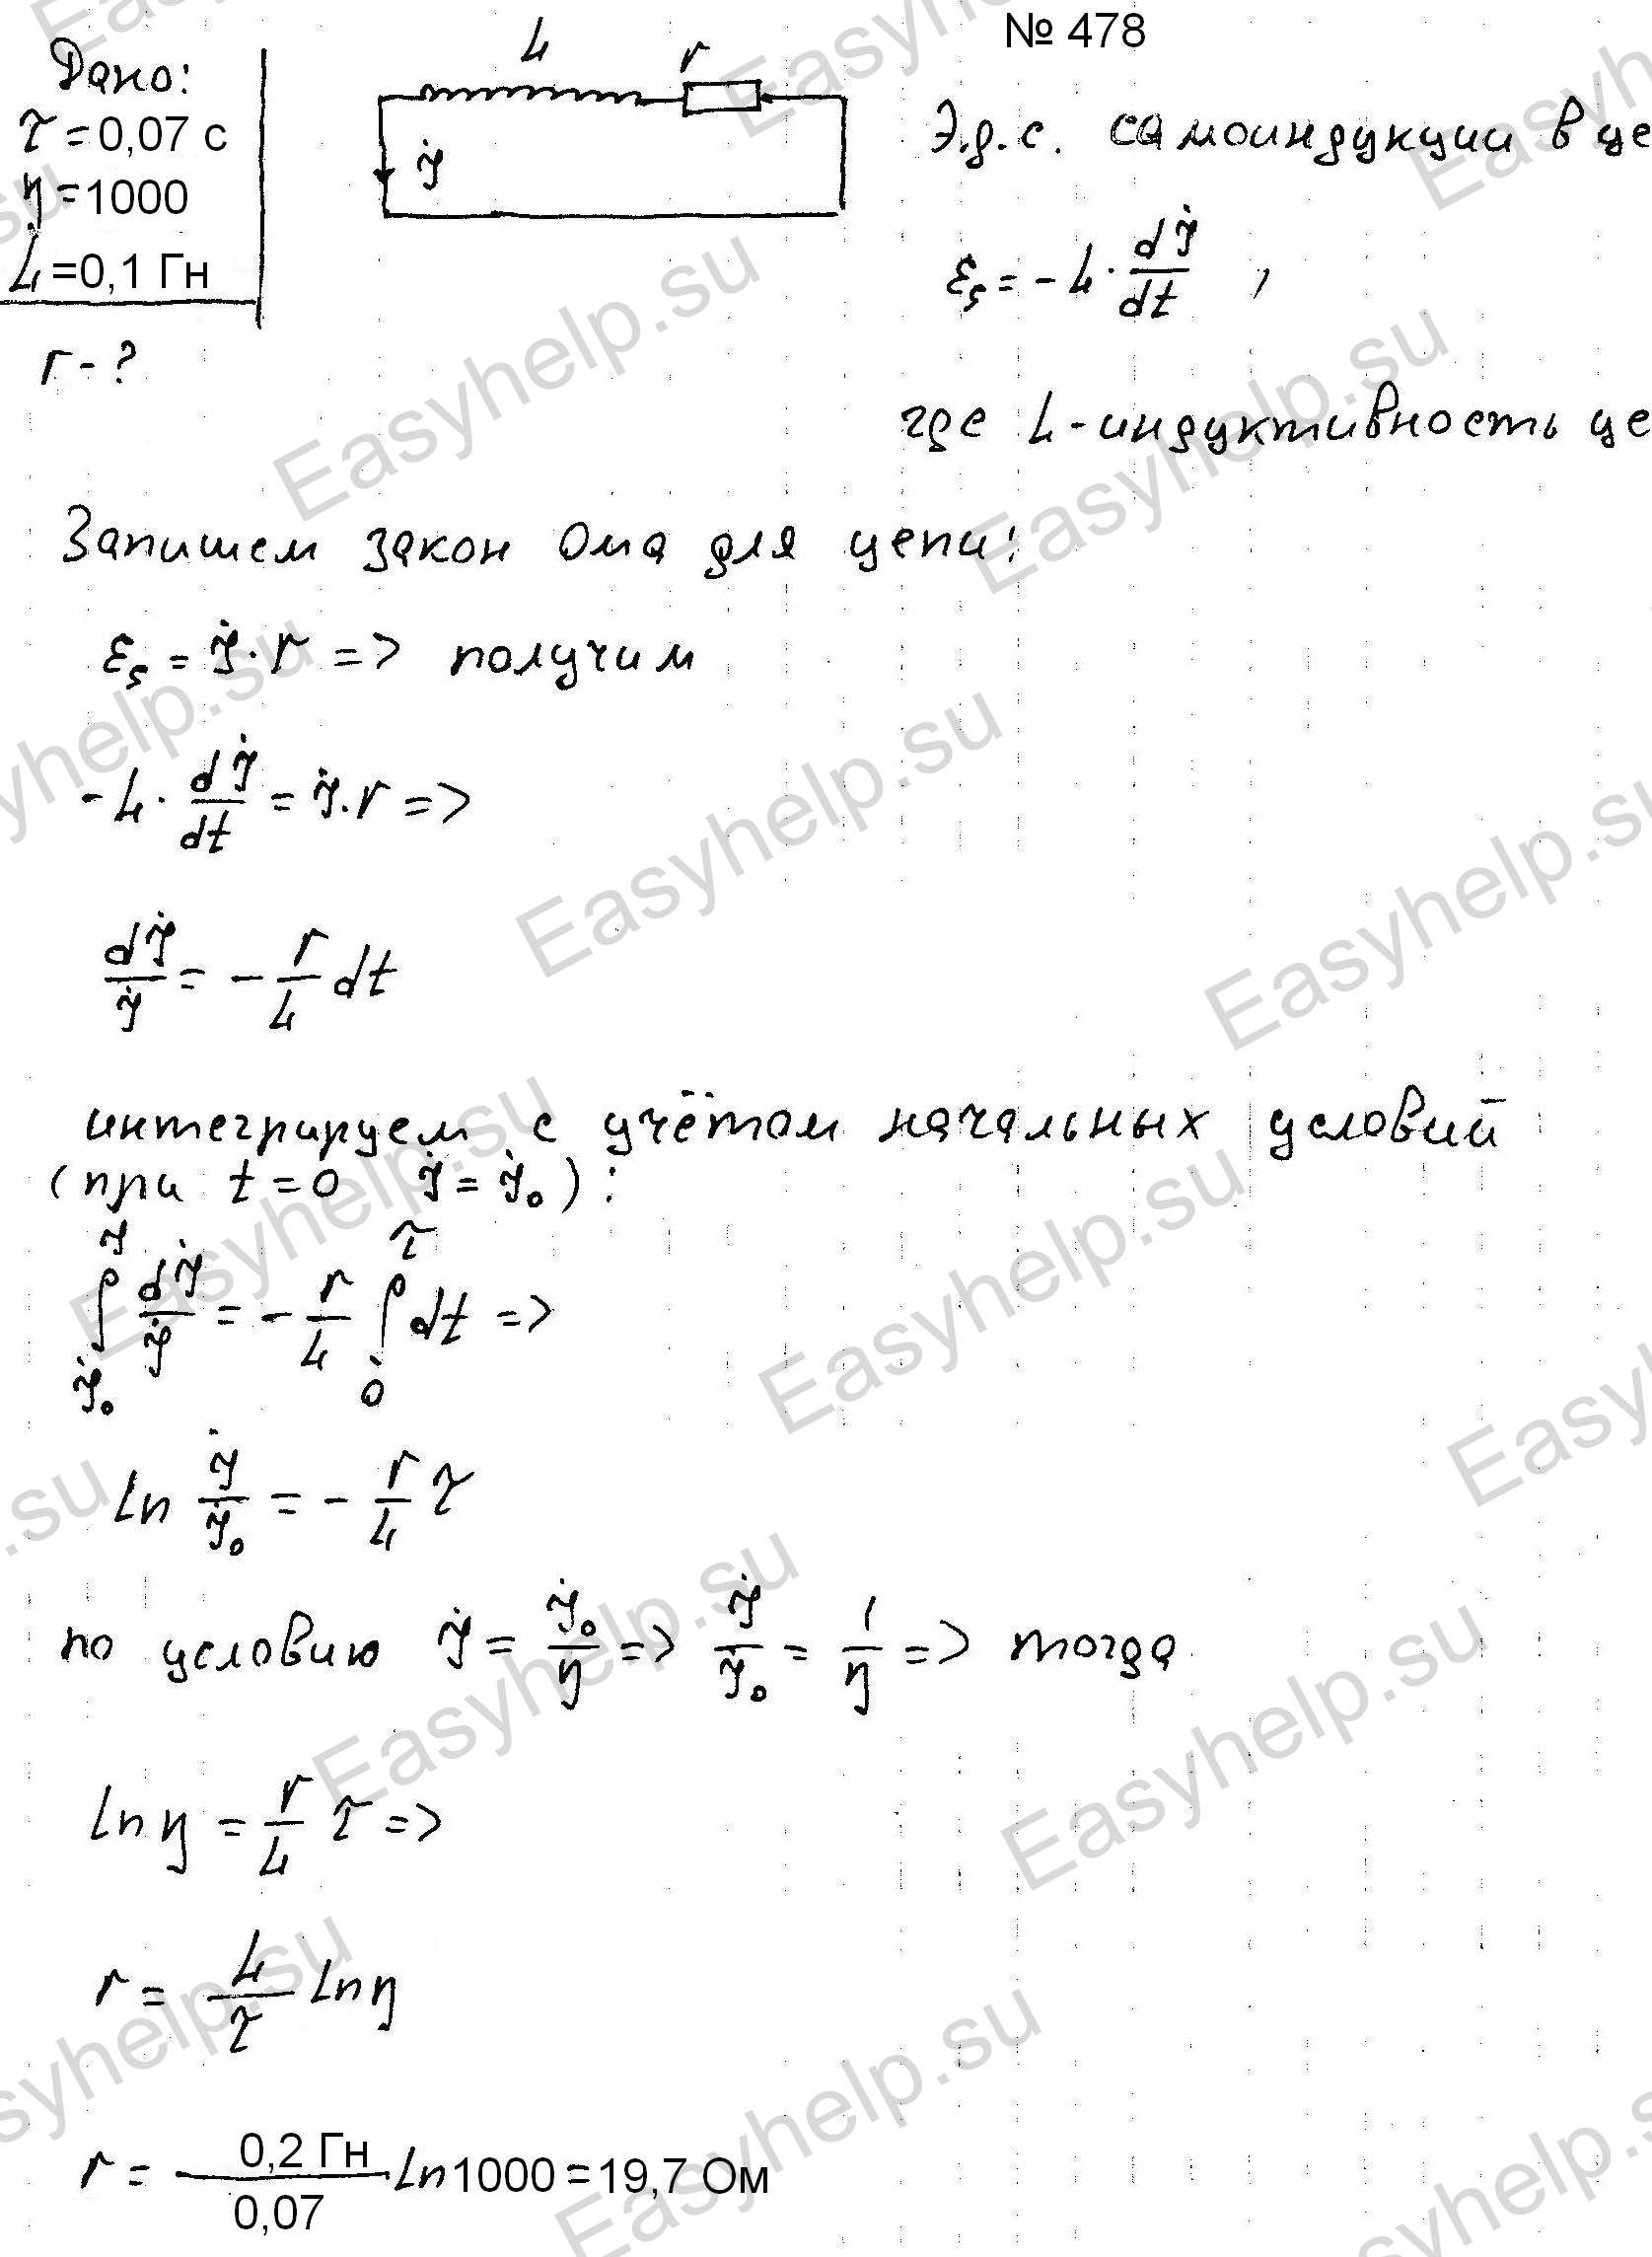 № 478
Дано:
τ = 0,07 с
η = 1000
L = 0,1 Гн
r - ?
L r
I
Э.д.с. самоиндукции в це
εs = - L · dI/dt ,
где L - индуктивность це
Запишем закон Ома для цепи:
εs = I · r => получим
- L · dI/dt = I · r =>
dI/I = - r/L dt
интегрируем с учётом начальных условий
(при t = 0 I = I₀) :
∫_{I₀}^{I} dI/I = - r/L ∫_{0}^{τ} dt =>
ln I/I₀ = - r/L τ
по условию I = I₀/η => I/I₀ = 1/η => тогда
ln η = r/L τ =>
r = L/τ ln η
r = 0,2 Гн/0,07 ln 1000 = 19,7 Ом
Easyhelp.su